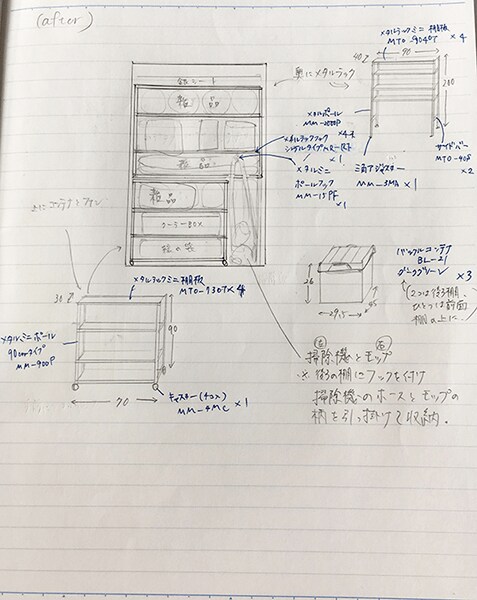 (after)
メタルラックミニ棚板
MTO-9040T ×4
40
90
200
奥にメタルラック
寝具
メタルポール
MM-2000P
メタルラックフック
×1
メタルミニ
ポールフック
MM-15PF
×1
三角アジャスター
MM-3MA ×1
サイドバー
MTO-40S
×2
寝具
寝具
上にコンテナとフトン
クーラーBOX
バックルコンテナ
BL-21
ダークグリーン
×3
(2つは後ろ棚、
ひとつは前面
棚の上に)
26
29.5
45
メタルラックミニ棚板
MTO-730T×4
30
90
70
メタルミニポール
90cmタイプ
MM-900P
キャスター(4コ入)
MM-4MC ×1
左 右
掃除機とモップ
※後ろの棚にフックを付け
掃除機のホースとモップの
柄を引っ掛けて収納.